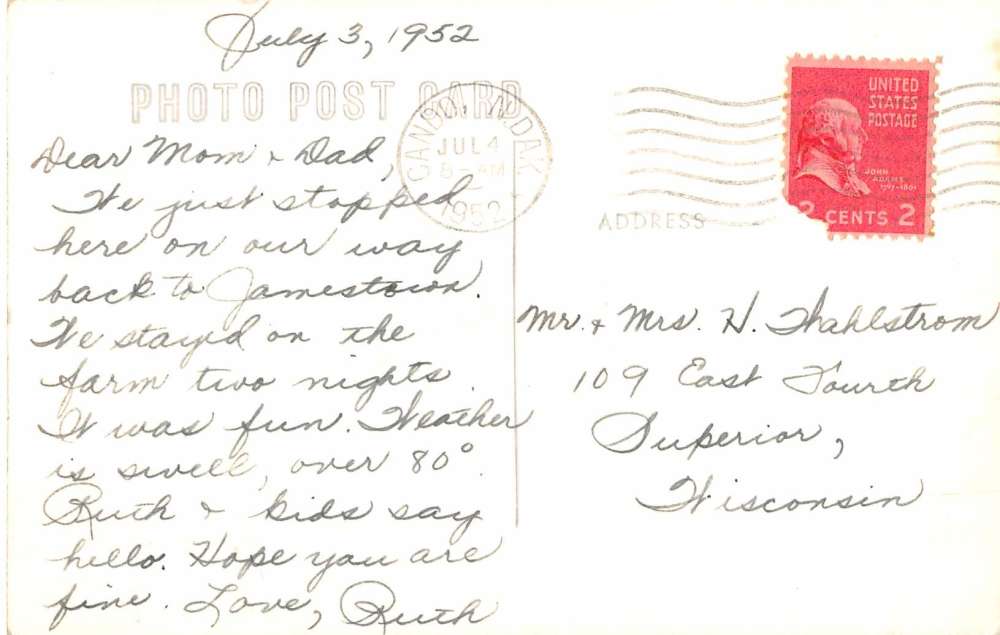 July 3, 1952
PHOTO POST CARD
CANDO, N.DAK.
JUL 4
AM
1952
UNITED
STATES
POSTAGE
JOHN
ADAMS
1797-1801
2 CENTS 2
ADDRESS
Dear Mom + Dad,
We just stopped
here on our way
back to Jamestown.
We stayed on the
farm two nights.
It was fun. Weather
is swell, over 80°.
Ruth + kids say
hello. Hope you are
fine. Love, Ruth
Mr. + Mrs. H. Wahlstrom
109 East Fourth
Superior,
Wisconsin